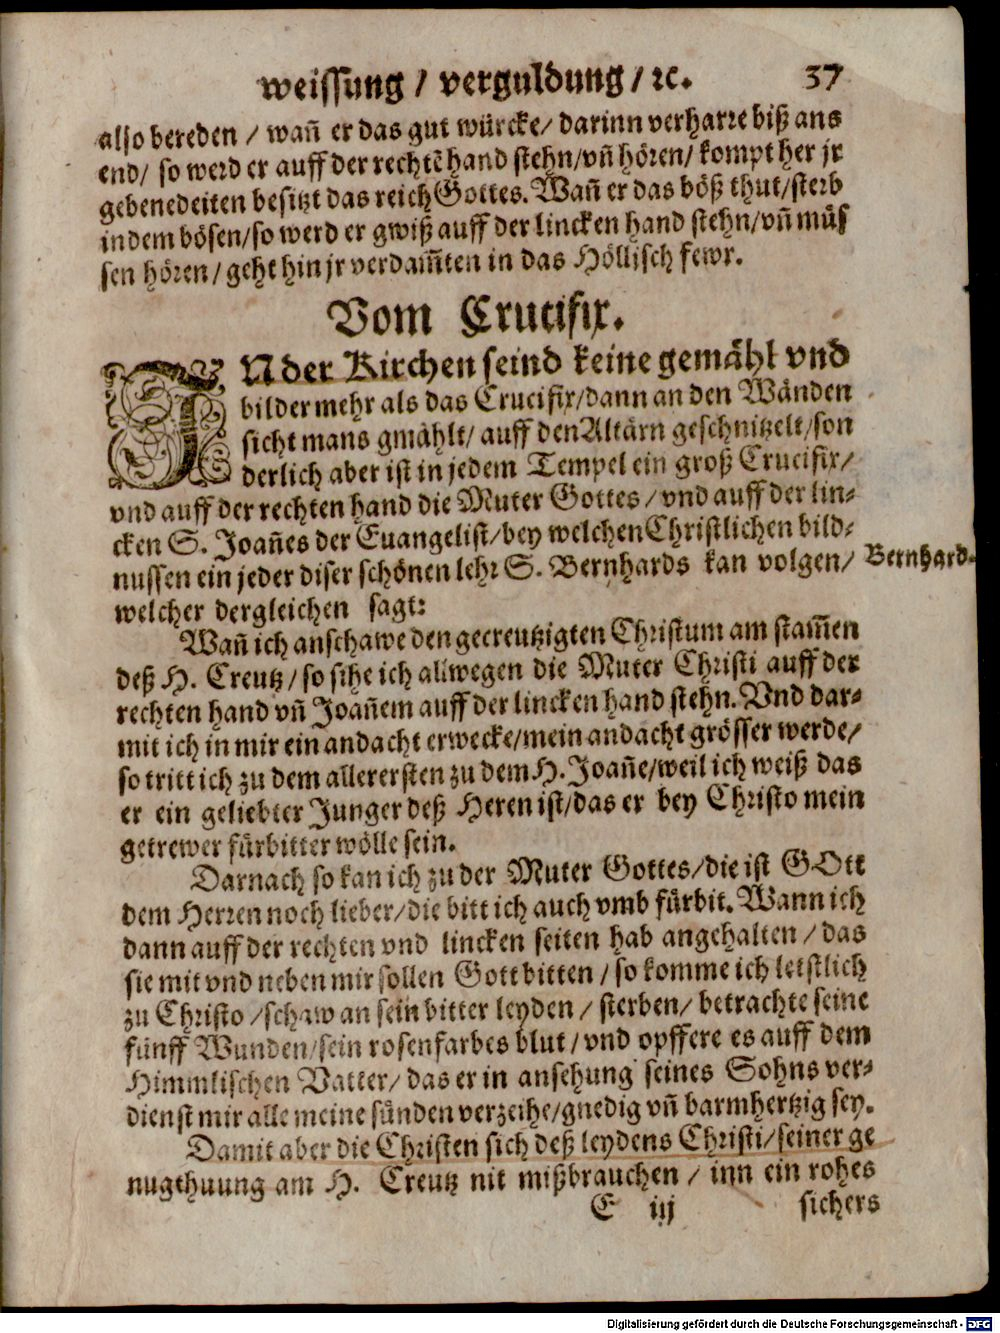 weissung / verguldung / ꝛc. 37
also bereden / wañ er das gut würcke / darinn verharre biß ans
end / so werd er auff der rechtē hand stehn / vñ hören / kompt her jr
gebenedeiten besitzt das reich Gottes. Wañ er das böß thut / sterb
in dem bösen / so werd er gwiß auff der lincken hand stehn / vñ müs
sen hören / geht hin jr verdam̃ten in das Höllisch fewr.
Vom Crucifix.
IN der Kirchen seind keine gemähl vnd
bilder mehr als das Crucifix / dann an den Wänden
sicht mans gmählt / auff den Altärn geschnitzelt / son
derlich aber ist in jedem Tempel ein groß Crucifix /
vnd auff der rechten hand die Muter Gottes / vnd auff der lin-
cken S. Joañes der Euangelist / bey welchen Christlichen bild-
nussen ein jeder diser schönen lehr S. Bernhards kan volgen / Bernhard.
welcher dergleichen sagt:
Wañ ich anschawe den gecreutzigten Christum am stam̃en
deß H. Creutz / so sihe ich allwegen die Muter Christi auff der
rechten hand vñ Joañem auff der lincken hand stehn. Vnd dar-
mit ich in mir ein andacht erwecke / mein andacht grösser werde /
so tritt ich zu dem allerersten zu dem H. Joañe / weil ich weiß das
er ein geliebter Junger deß Heren ist / das er bey Christo mein
getrewer fürbitter wölle sein.
Darnach so kan ich zu der Muter Gottes / die ist GOtt
dem Herren noch lieber / die bitt ich auch vmb fürbit. Wann ich
dann auff der rechten vnd lincken seiten hab angehalten / das
sie mit vnd neben mir sollen Gott bitten / so komme ich letstlich
zu Christo / schaw an sein bitter leyden / sterben / betrachte seine
fünff Wunden / sein rosenfarbes blut / vnd opffere es auff dem
Himmlischen Vatter / das er in ansehung seines Sohns ver-
dienst mir alle meine sünden verzeihe / gnedig vñ barmhertzig sey.
Damit aber die Christen sich deß leydens Christi / seiner ge
nugthuung am H. Creutz nit mißbrauchen / inn ein rohes
E iij sichers
Digitalisierung gefördert durch die Deutsche Forschungsgemeinschaft - DFG